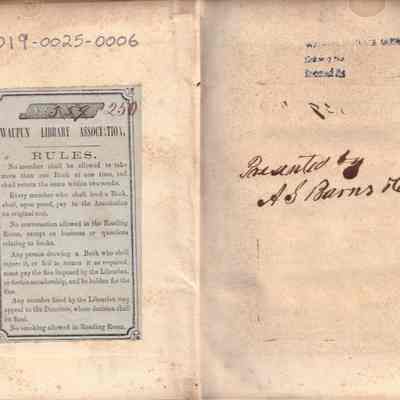 019-0025-0006
554 250
WAUPUN LIBRARY ASSOCIATION.
RULES.
No member shall be allowed to take
more than one Book at one time, and
shall return the same within two weeks.
Every member who shall lend a Book,
shall, upon proof, pay to the Association
its original cost.
No conversation allowed in the Reading
Room, except on business or questions
relating to books.
Any person drawing a Book who shall
injure it, or fail to return it as required
must pay the fine imposed by the Librarian,
or forfeit membership, and be holden for the
fine.
Any member fined by the Librarian may
appeal to the Directors, whose decision shall
be final.
No smoking allowed in Reading Room.
Presented by
A S Barns